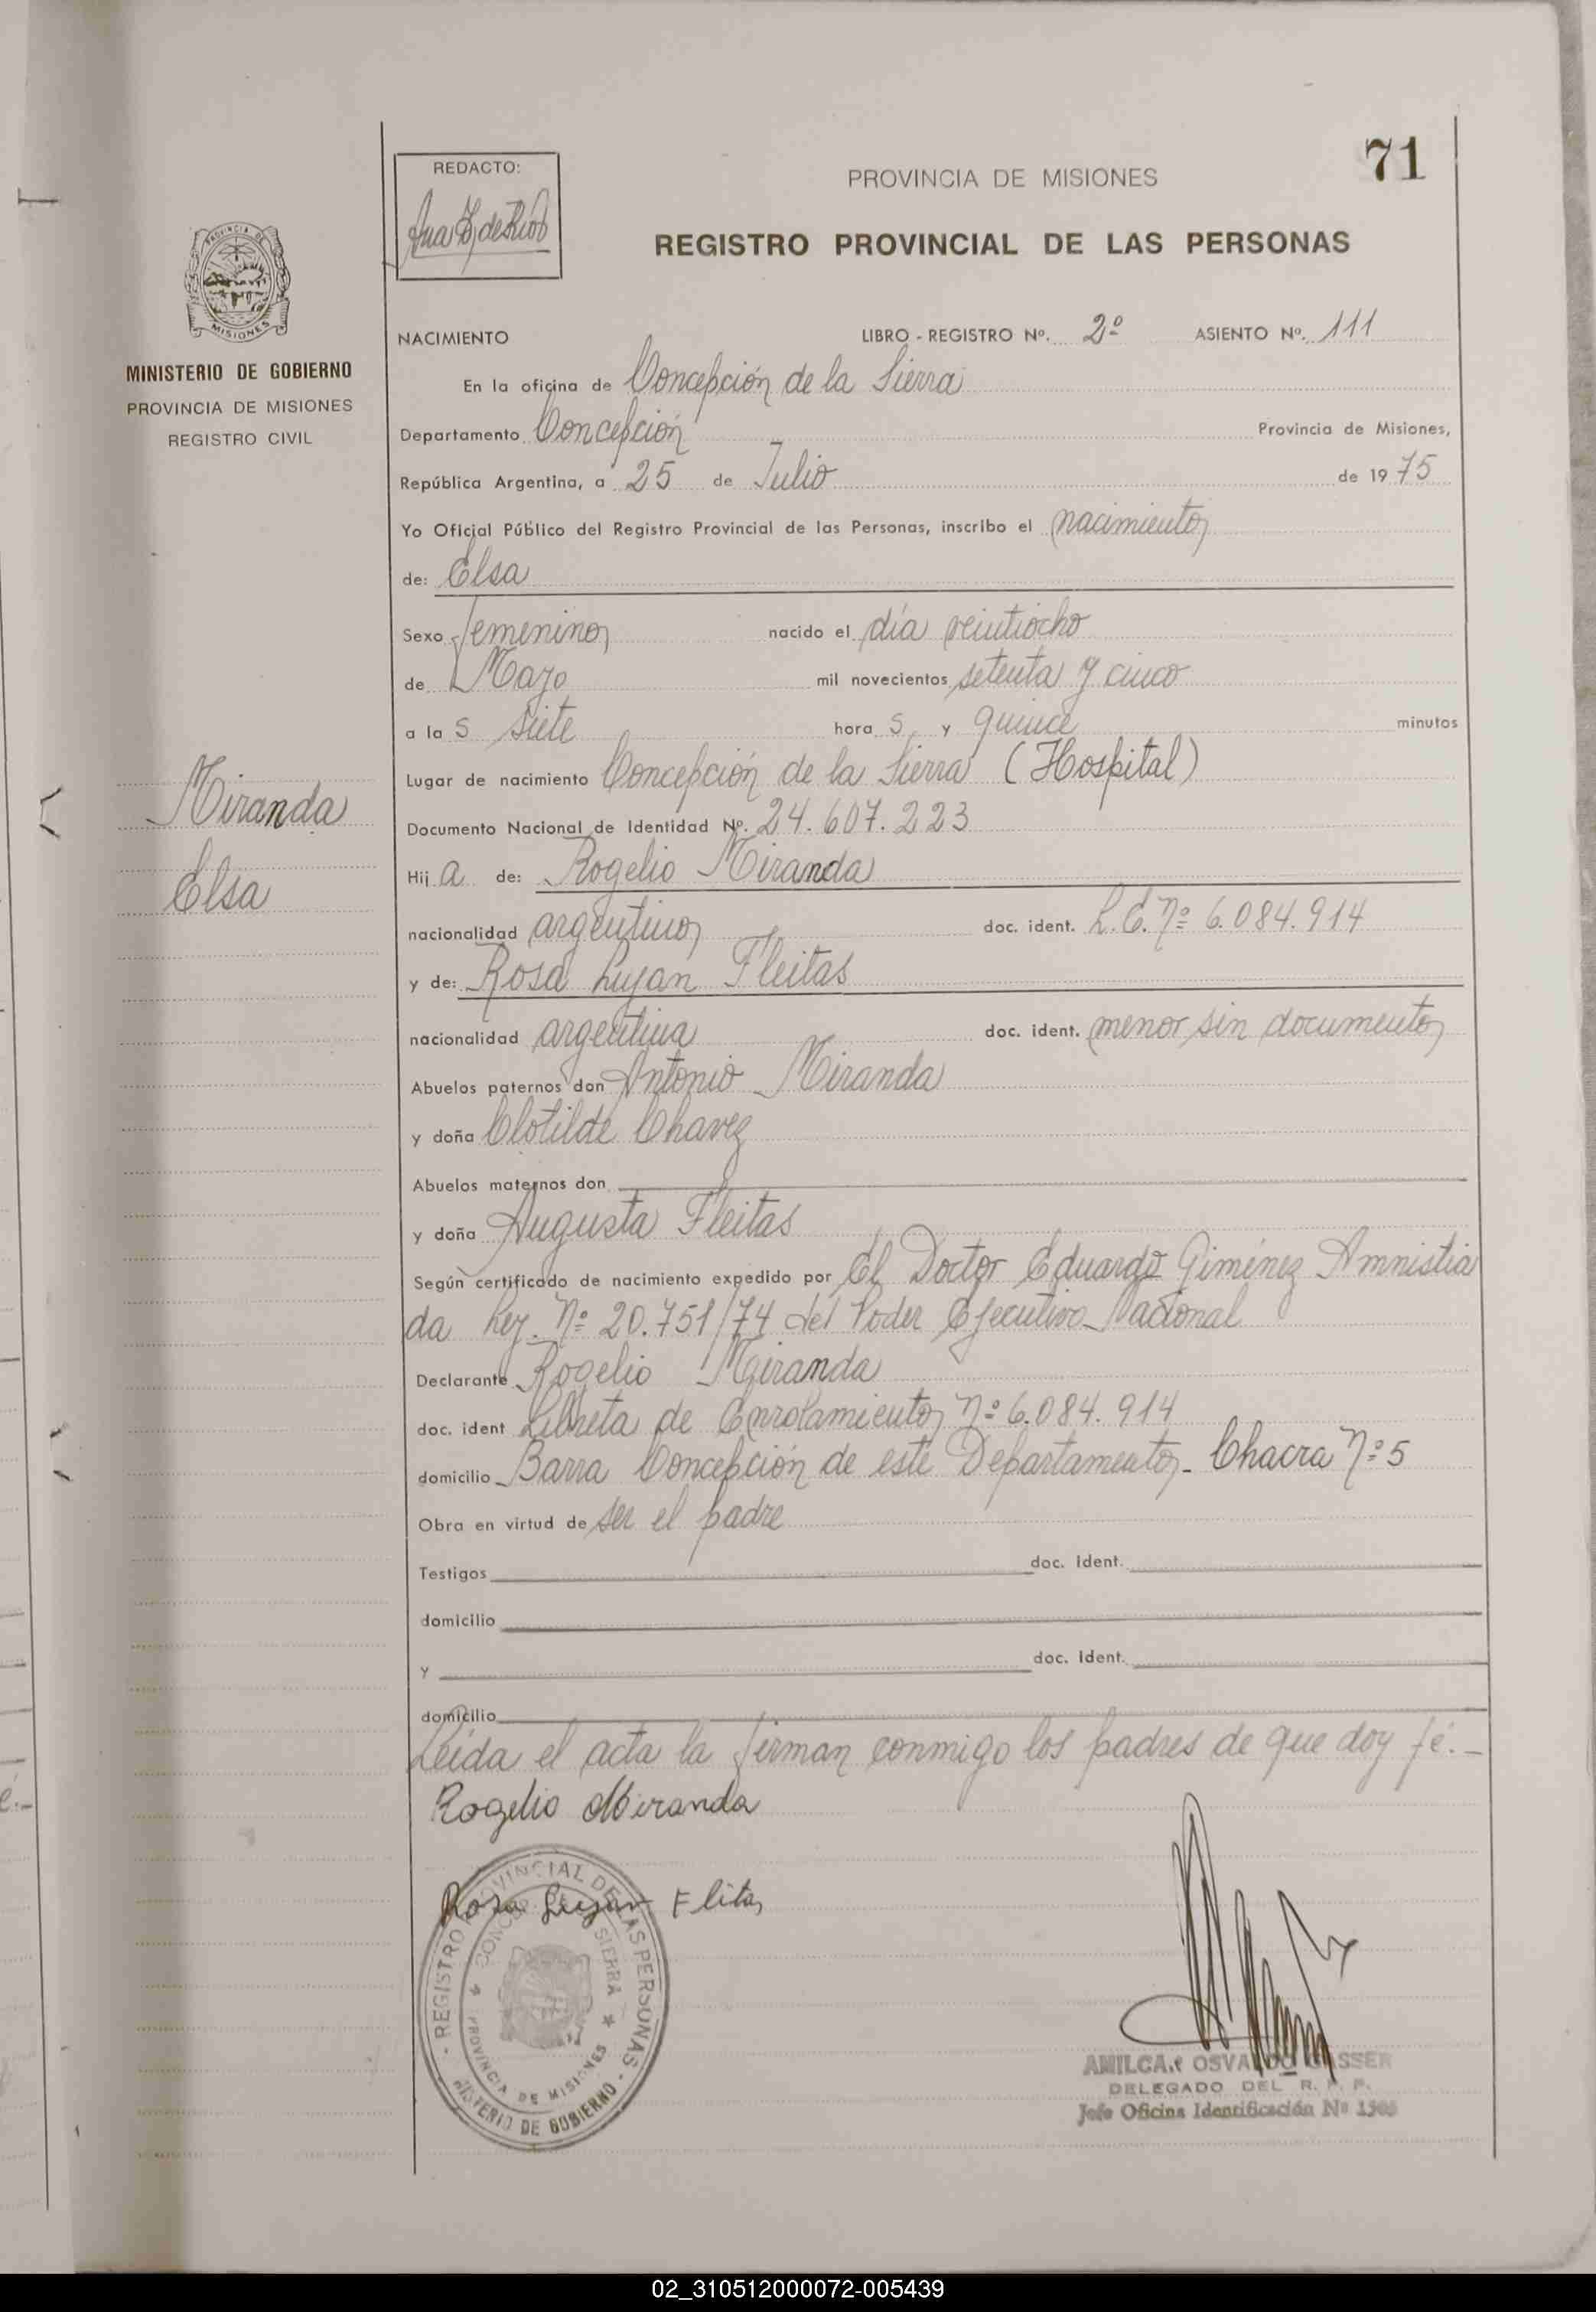 71
REDACTO:
PROVINCIA DE MISIONES
REGISTRO PROVINCIAL DE LAS PERSONAS
MISIONES
MINISTERIO DE GOBIERNO
PROVINCIA DE MISIONES
REGISTRO CIVIL
Miranda
Elsa
NACIMIENTO LIBRO - REGISTRO Nº. 2º ASIENTO Nº. 111
En la oficina de Concepción de la Sierra
Departamento Concepción Provincia de Misiones,
República Argentina, a 25 de Julio de 1975
Yo Oficial Público del Registro Provincial de las Personas, inscribo el nacimiento
de: Elsa
Sexo femenino nacido el día veintiocho
de Mayo mil novecientos setenta y cinco
a las siete horas y quince minutos
Lugar de nacimiento Concepción de la Sierra (Hospital)
Documento Nacional de Identidad Nº. 24.607.223
Hija de: Rogelio Miranda
nacionalidad argentino doc. ident. L.E. nº 6.084.914
y de: Rosa Lujan Fleitas
nacionalidad argentina doc. ident. menor sin documento
Abuelos paternos don Antonio Miranda
y doña Clotilde Chavez
Abuelos maternos don
y doña Augusta Fleitas
Según certificado de nacimiento expedido por El Doctor Eduardo Giménez Amnistia
da Ley. Nº 20.751/74 del Poder Ejecutivo Nacional
Declarante Rogelio Miranda
doc. ident Libreta de Enrolamiento nº 6.084.914
domicilio Barra Concepción de este Departamento - Chacra nº 5
Obra en virtud de ser el padre
Testigos doc. Ident.
domicilio
y doc. Ident.
domicilio
Leída el acta la firman conmigo los padres de que doy fé.-
Rogelio Miranda
Rosa Lujan Flitas
REGISTRO PROVINCIAL DE LAS PERSONAS
SIERRA
PROVINCIA DE MISIONES
MINISTERIO DE GOBIERNO
AMILCAR OSVALDO GASSER
DELEGADO DEL R. P. P.
Jefe Oficina Identificación Nº
02_310512000072-005439